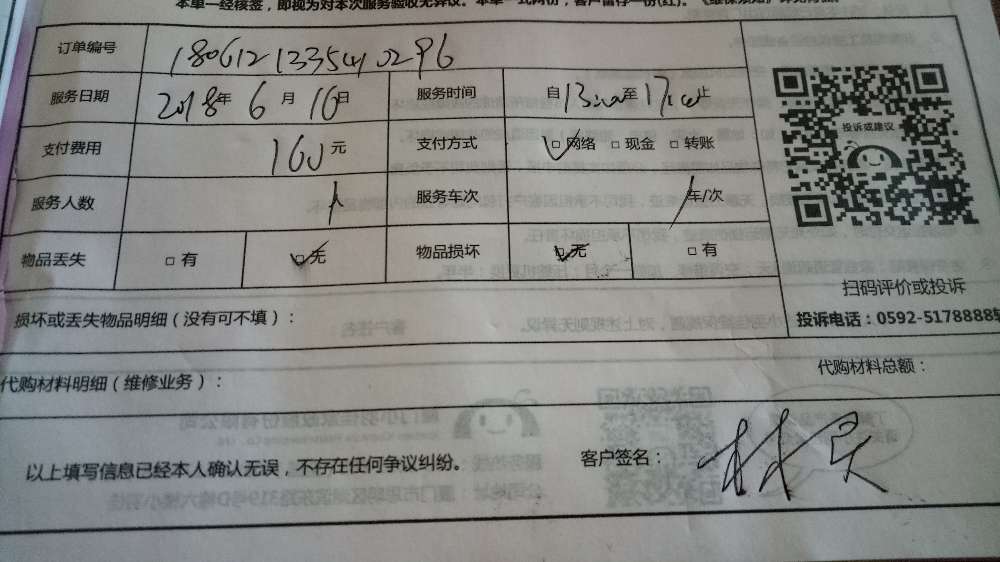 本单一经核签，即视为对本次服务验收无异议。本单一式两份，客户留存一份(红)。
订单编号
服务日期 2018年 6月 16日 服务时间 自13:00至17:00止
支付费用 160元 支付方式 □网络 □现金 □转账
服务人数 1 服务车次 车/次
物品丢失 □有 □无 物品损坏 □无 □有
投诉或建议
扫码评价或投诉
投诉电话：0592-5178888转
损坏或丢失物品明细（没有可不填）：
代购材料明细（维修业务）： 代购材料总额：
以上填写信息已经本人确认无误，不存在任何争议纠纷。 客户签名：